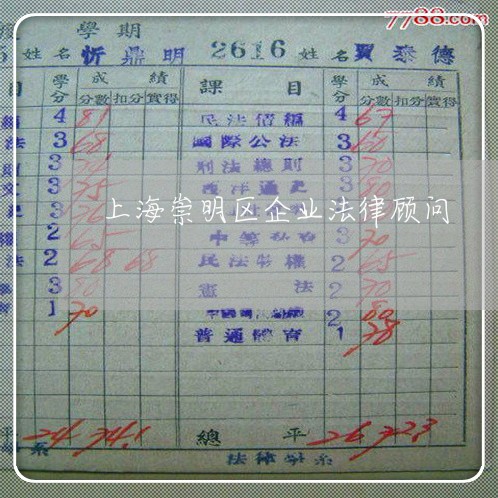 7788.com
學期
5 姓名 忻鼎明 2616 姓名 賈泰德
目 學分 成績 課目 學分 成績
分數 扣分 實得 分數 扣分 實得
4 81 民法債編 4 67
法 3 68 國際公法 3 60
3 刑法總則 3 70
3 75 西洋通史 3 80
上海崇明区企业法律顾问
2 65 3 70
法 2 68 68 民法物權 2 65
3 80 憲法 2 70
1 70 2 80
普通體育 1 78
平 24 74.1 總平 26 72.3
系 法律學系